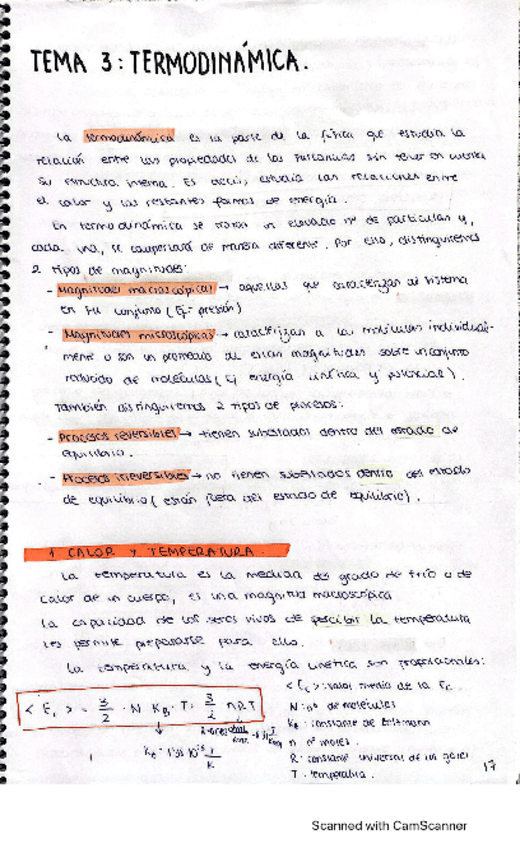 TEMA 3: TERMODINÁMICA.
La termodinámica es la parte de la física que estudia la
relación entre las propiedades de las sustancias sin tener en cuenta
su estructura interna. Es decir, estudia las relaciones entre
el calor y las restantes formas de energía.
En termodinámica se tratan un elevado nº de partículas y,
cada una, se comportará de manera diferente. Por ello, distinguiremos
2 tipos de magnitudes:
- Magnitudes macroscópicas → aquellas que caracterizan al sistema
en su conjunto (Ej: presión)
- Magnitudes microscópicas → caracterizan a las moléculas individual-
mente o son un promedio de estas magnitudes sobre un conjunto
reducido de moléculas (Ej energía cinética y potencial).
También distinguiremos 2 tipos de procesos:
- Procesos reversibles → tienen subestados dentro del estado de
equilibrio.
- Procesos irreversibles → no tienen subestados dentro del estado
de equilibrio (están fuera del estado de equilibrio).
1 CALOR Y TEMPERATURA.
La temperatura es la medida del grado de frío o de
calor de un cuerpo, es una magnitud macroscópica
La capacidad de los seres vivos de percibir la temperatura
les permite prepararse para ello.
La temperatura y la energía cinética son proporcionales:
< Ec > = 3/2 · N KB · T = 3/2 nRT
< Ec >: valor medio de la Ec
N: nº de moléculas
KB: constante de Boltzmann
n nº moles.
R: constante universal de los gases
T: temperatura.
17
Scanned with CamScanner